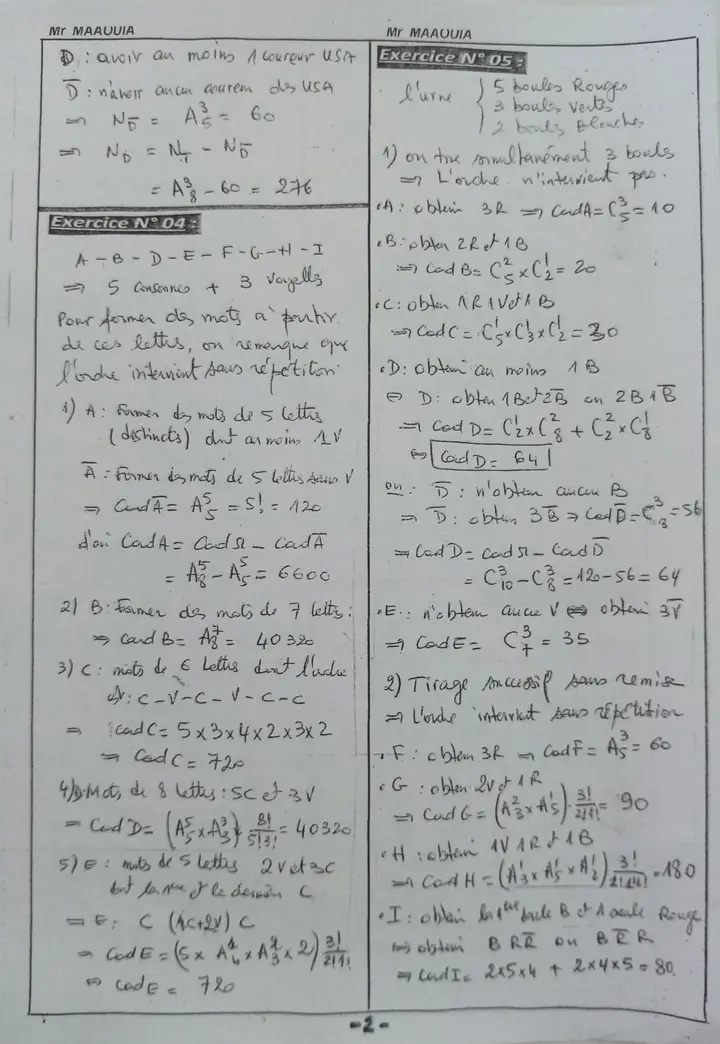 Mr MAAOUIA
D : avoir au moins 1 coureur USA
D̅ : n'avoir aucun coureur des USA
⇒ N_D̅ = A³₅ = 60
⇒ N_D = N_T - N_D̅
= A³₈ - 60 = 276
Exercice N° 04 :
A - B - D - E - F - G - H - I
⇒ 5 consonnes + 3 voyelles
Pour former des mots à partir
de ces lettres, on remarque que
l'ordre intervient sans répétition
1) A : Former des mots de 5 lettres
(distincts) dont au moins 1V
A̅ : Former des mots de 5 lettres sans V
⇒ Card A̅ = A⁵₅ = 5! = 120
d'où Card A = Card Ω - Card A̅
= A⁵₈ - A⁵₅ = 6600
2) B : Former des mots de 7 lettres :
⇒ Card B = A⁷₈ = 40320
3) C : mots de 6 lettres dont l'ordre
est : C - V - C - V - C - C
⇒ Card C = 5 x 3 x 4 x 2 x 3 x 2
⇒ Card C = 720
4) D : Mots de 8 lettres : 5C et 3V
⇒ Card D = (A⁵₅ x A³₃) x 8!/5!3! = 40320
5) E : mots de 5 lettres 2V et 3C
dont la 1ère et le dernier C
⇒ E : C (1C+2V) C
⇒ Card E = (5 x A¹₄ x A²₃ x 2) 3!/2!1!
⇔ Card E = 720
Mr MAAOUIA
Exercice N° 05 :
l'urne { 5 boules Rouges
3 boules Vertes
2 boules Blanches
1) on tire simultanément 3 boules
⇒ L'ordre n'intervient pas.
• A : obtenir 3R ⇒ Card A = C³₅ = 10
• B : obtenir 2R et 1B
⇒ Card B = C²₅ x C¹₂ = 20
• C : obtenir 1R 1V et 1B
⇒ Card C = C¹₅ x C¹₃ x C¹₂ = 30
• D : obtenir au moins 1B
⇔ D : obtenir 1B et 2B̅ ou 2B 1B̅
⇒ Card D = C¹₂ x C²₈ + C²₂ x C¹₈
⇔ Card D = 64
ou : D̅ : n'obtenir aucun B
⇒ D̅ : obtenir 3B̅ ⇒ Card D̅ = C³₈ = 56
⇒ Card D = Card Ω - Card D̅
= C³₁₀ - C³₈ = 120 - 56 = 64
• E : n'obtenir aucune V ⇔ obtenir 3V̅
⇒ Card E = C³₇ = 35
2) Tirage successif sans remise
⇒ L'ordre intervient sans répétition
• F : obtenir 3R ⇒ Card F = A³₅ = 60
• G : obtenir 2V et 1R
⇒ Card G = (A²₃ x A¹₅) . 3!/2!1! = 90
• H : obtenir 1V 1R et 1B
⇒ Card H = (A¹₃ x A¹₅ x A¹₂) 3!/1!1!1! = 180
• I : obtenir la 1ère boule B et 1 seule Rouge
⇒ obtenir B R R̅ ou B R̅ R
⇒ Card I = 2x5x4 + 2x4x5 = 80
-2-